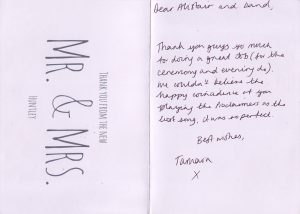 MR. & MRS.
THANK YOU FROM THE NEW
HUNTLEY
Dear Alistair and David,
Thank you guys so much
for doing a great job (for the
ceremony and evening do).
We couldn't believe the
happy coincidence of you
playing the Proclaimers as the
last song, it was so perfect.
Best wishes,
Tamara
X